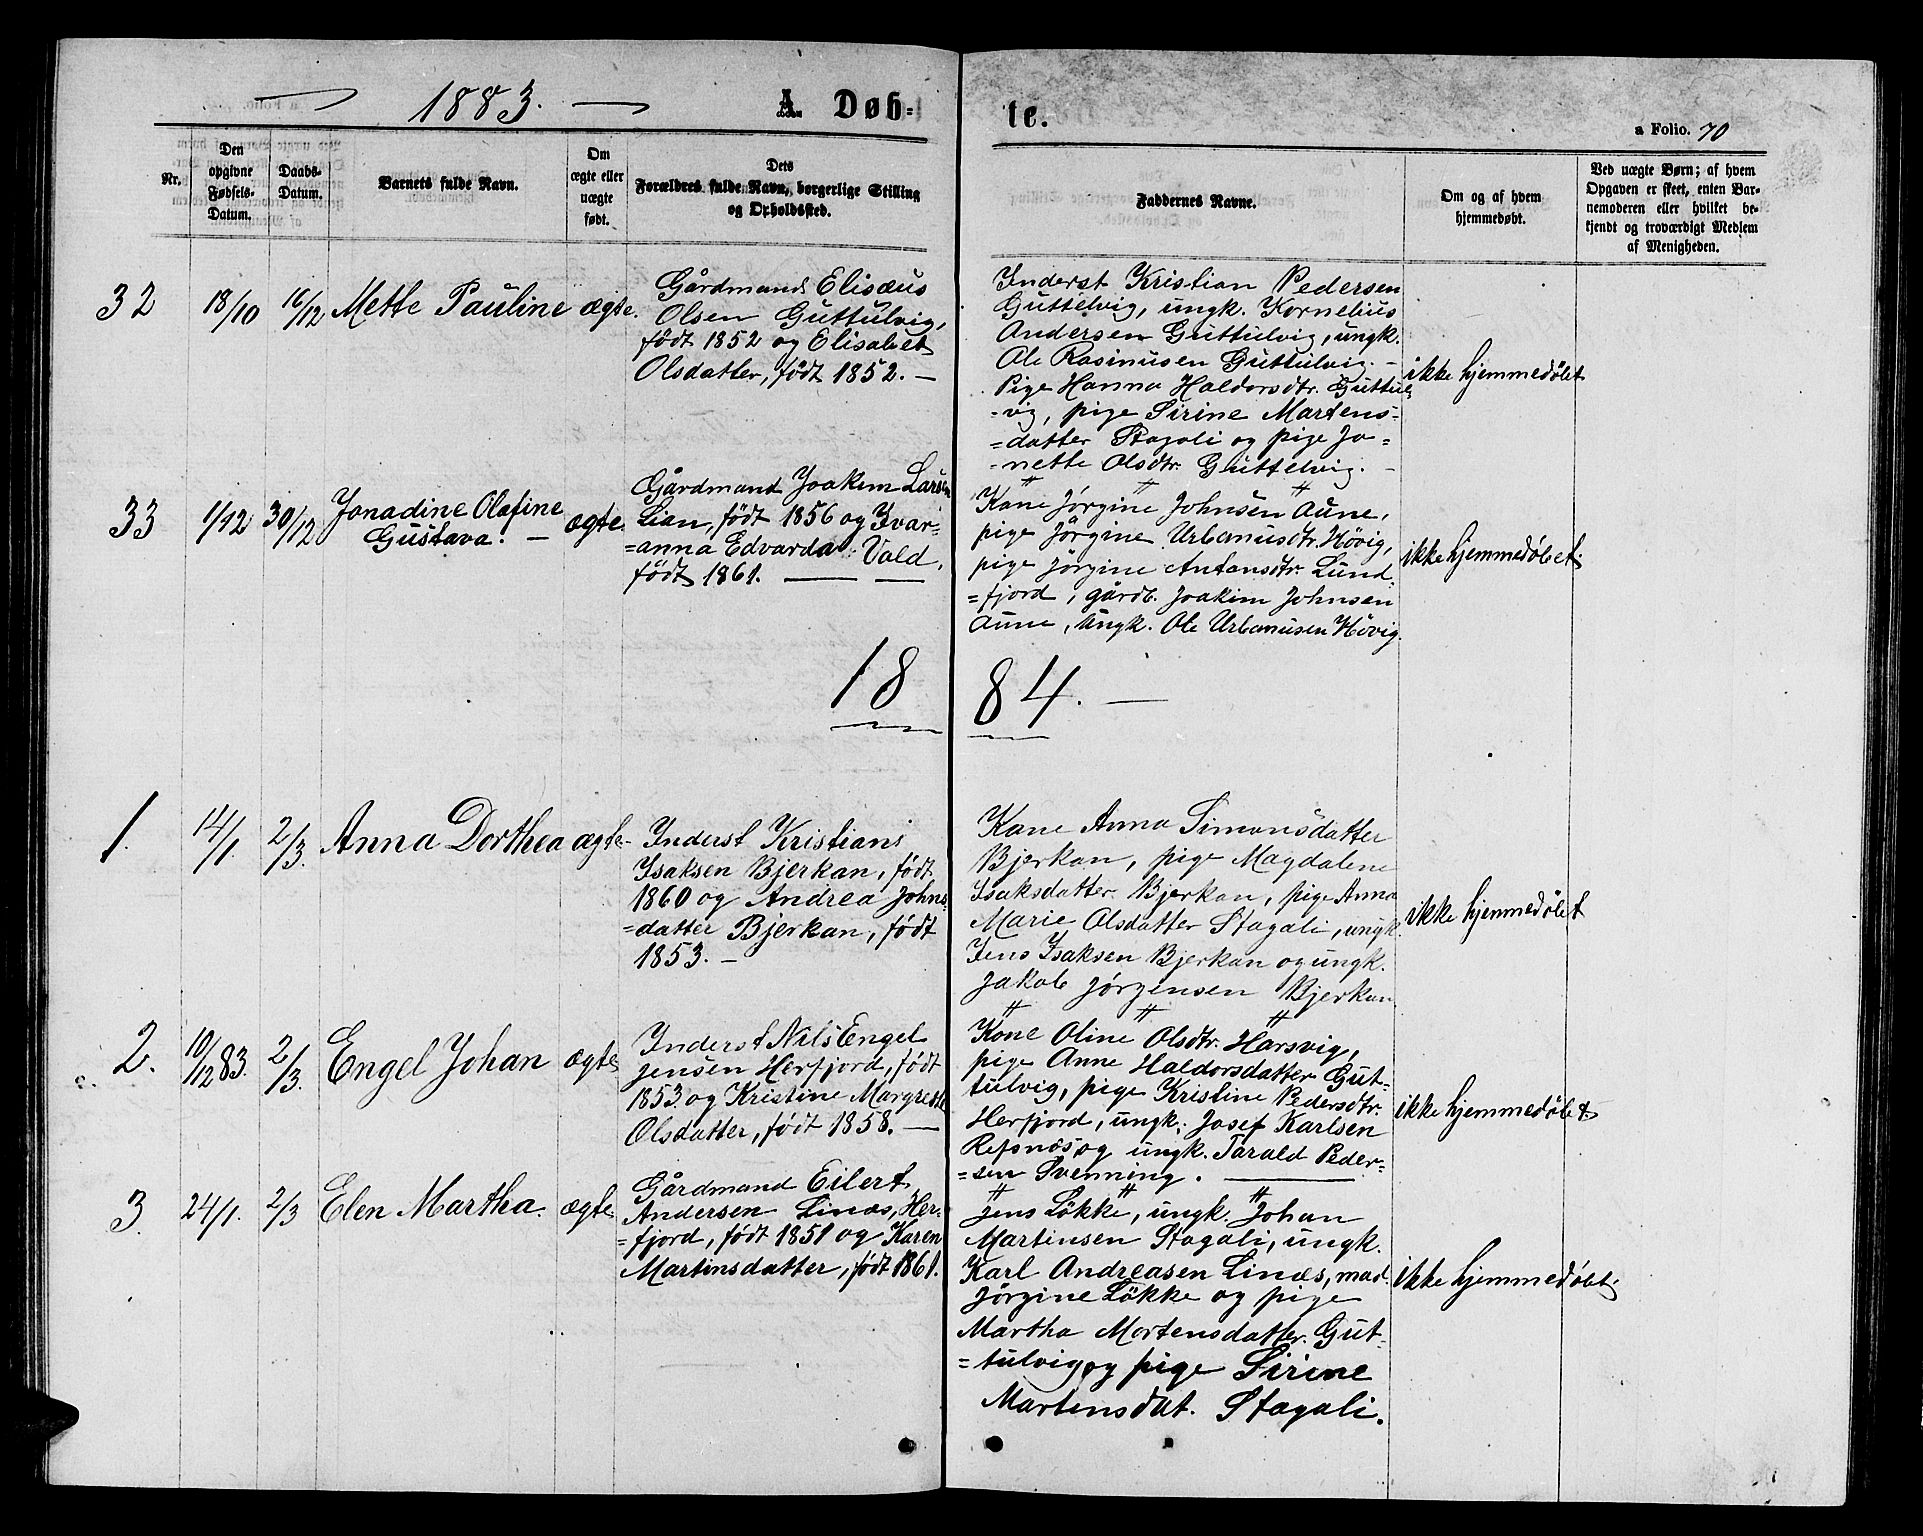 1883. A. Døb= te.
a Folio. 70
Nr.
Den opgivne Fødsels-Datum.
Daabs-Datum.
Barnets fulde Navn.
Om ægte eller uægte født.
Dets Forældres fulde Navn, borgerlige Stilling og Opholdssted.
Faddernes Navne.
Om og af hvem hjemmedøbt.
Ved uægte Børn; af hvem Opgaven er skeet, enten Barnemoderen eller hvilket bekjendt og troværdigt Medlem af Menigheden.
32 18/10 16/12 Mette Pauline ægte.
Gårdmand Elisæus
Olsen Guttulvig,
født 1852 og Elisabet
Olsdatter, født 1852. —
Inderst Kristian Pedersen
Guttelvig, ungk. Kornelius
Andersen Guttulvig, ungk.
Ole Rasmusen Guttulvig. —
Pige Hanna Haldorsdtr. Guttul-
-vig, pige Sirine Martens-
=datter Stagali og pige Jo=
-nette Olsdtr. Guttelvig. —
ikke hjemmedøbt
33 1/12 30/12 Jonadine Olafine
Gustava. — ægte.
Gårdmand Joakim Larsen
Lian, født 1856 og Ivar-
=anna Edvarda Vold,
født 1861. — —
Kone Jørgine Johnsen Aune,
pige Jørgine Urbanusdtr. Høvig,
pige Jørgine Antonsdtr. Lund
=fjord, gårdb. Joakim Johnsen
Aune, Ungk. Ole Urbanusen Høvig.
ikke hjemmedøbt.
18 84. —
1. 14/1. 2/3. Anna Dorthea ægte.
Inderst Kristian
Isaksen Bjerkan, født
1860 og Andrea Johns-
=datter Bjerkan, født
1853. —
Kone Anna Simonsdatter
Bjerkan, pige Magdalene
Isaksdatter Bjerkan, pige Anna
Marie Olsdatter Stagali, ungk.
Jens Isaksen Bjerkan og ungk.
Jakob Jørgensen Bjerkan
ikke hjemmedøbt
2. 10/12 83. 2/3. Engel Johan ægte
Inderst Nils Engel
Jensen Herfjord, født
1853. og Kristine Margrete
Olsdatter, født 1858. —
Kone Oline Olsdtr. Harsvig,
pige Anne Haldorsdatter Gut-
tulvig, pige Kristine Pedersdtr.
Herfjord, ungk. Josef Karlsen
Refsnæs og ungk. Tarald Peder-
=sen Svenning. —
ikke hjemmedøbt.
3. 24/1. 2/3 Elen Martha. ægte.
Gårdmand Eilert
Andersen Linæs, Her-
=fjord, født 1851 og Karen
Martinsdatter, født 1861.
Jens Løkke, ungk. Johan
Martinsen Stagali, ungk.
Karl Andreasen Linæs, mad.
Jørgine Løkke og pige
Martha Mortensdatter Gut-
=tulvig og pige Sirine
Martensdat. Stagali.
ikke hjemmedøbt.